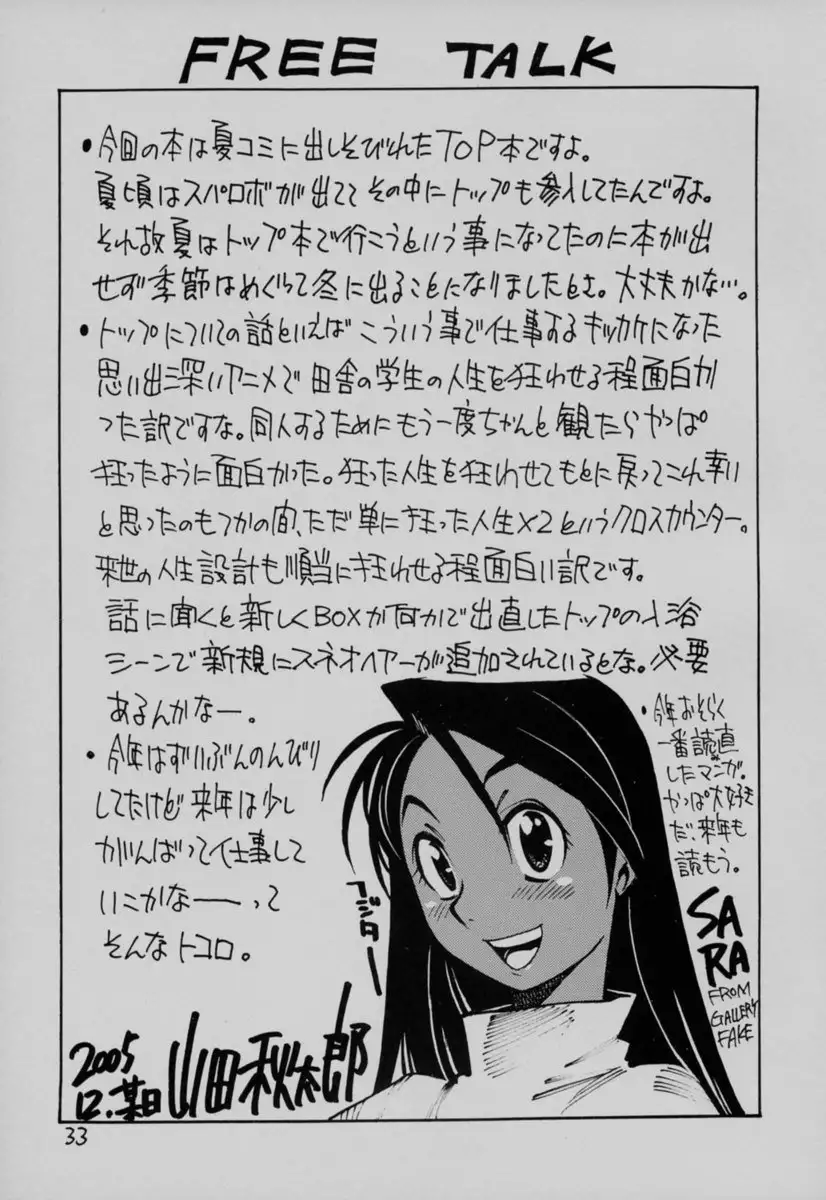 FREE TALK
・今回の本は夏コミに出しそびれたTOP本ですよ。
夏頃はスパロボが出てて その中にトップも参入してたんですよ。
それ故夏はトップ本で行こうという事になってたのに本が出
せず季節はめぐって冬に出ることになりましたとさ。大丈夫かな…。
・トップについての話といえば こういう事で仕事するキッカケになった
思い出深いアニメで 田舎の学生の人生を狂わせる程面白か
った訳ですな。同人するためにもう一度ちゃんと観たらやっぱ
狂ったように面白かった。狂った人生を狂わせてもとに戻ってこれ幸い
と思ったのもつかの間、ただ単に狂った人生×2というクロスカウンター。
来世の人生設計も順当に狂わせる程面白い訳です。
話に聞くと新しくBOXか何かで出直したトップの入浴
シーンで新規にスネオヘアーが追加されているとな。必要
あるんかなー。
・今年はずいぶんのんびり
してたけど来年は少し
がんばって仕事して
いこかなーーって
そんなトコロ。
・今年おそらく
一番読直
したマンガ。
やっぱ大好き
だ、来年も
読もう。
SA
RA
FROM
GALLERY
FAKE
2005
12.某日 山田秋太郎
33